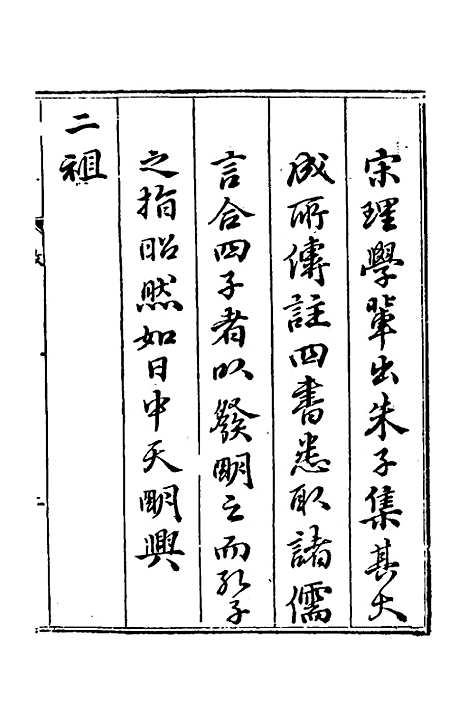 宋理學輩出朱子集其大
成所傳註四書悉取諸儒
言合四子者以發明之而孔子
之指昭然如日中天明興
二祖
二